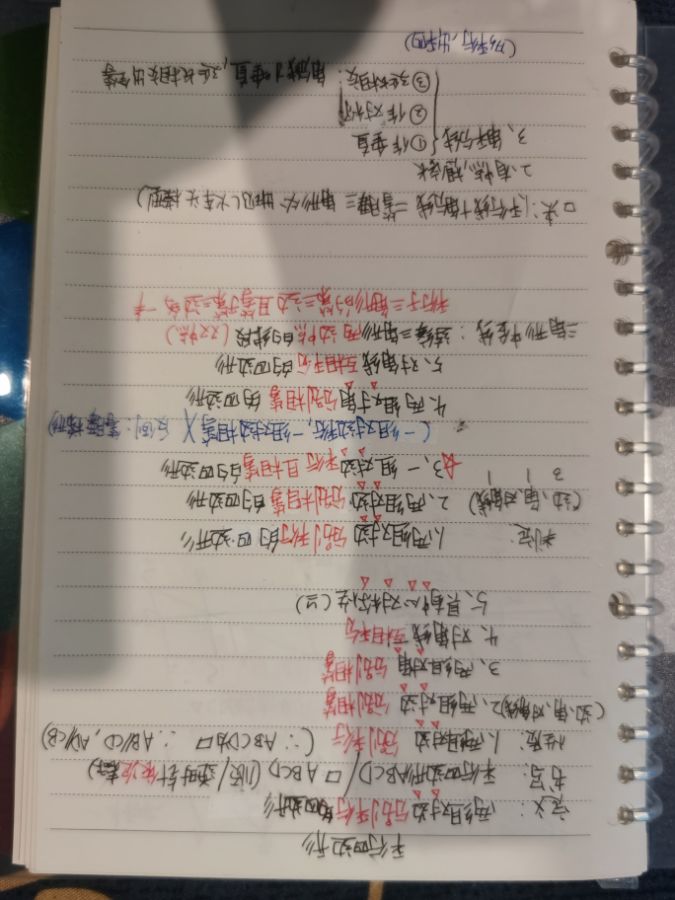 平行四边形
定义：两组对边分别平行的四边形
书写：平行四边形ABCD/▱ABCD（顺/逆时针依次表示）
性质：1、两组对边分别平行（∵ABCD为▱ ∴AB//CD，AD//CB）
（边、角、对角线）2、两组对边分别相等
3、两组对角分别相等
4、对角线互相平分
5、具有中心对称性（图）
判定：1、两组对边分别平行的四边形
（边、角、对角线）2、两组对边分别相等的四边形
3 1 1 ☆3、一组对边平行且相等的四边形
（一组对边平行，一组对边相等X 反例：等腰梯形）
4、两组对角分别相等的四边形
5、对角线互相平分的四边形
三角形中位线：连结三角形两边中点的线段（双中点）
平行于三角形的第三边且等于第三边的一半
▱中：1、平行线+角分线=等腰三角形
2、有中点，想
3、角平分线 ①作垂直
②作对称
③延长相交：角分线+垂直，延长相交出全等